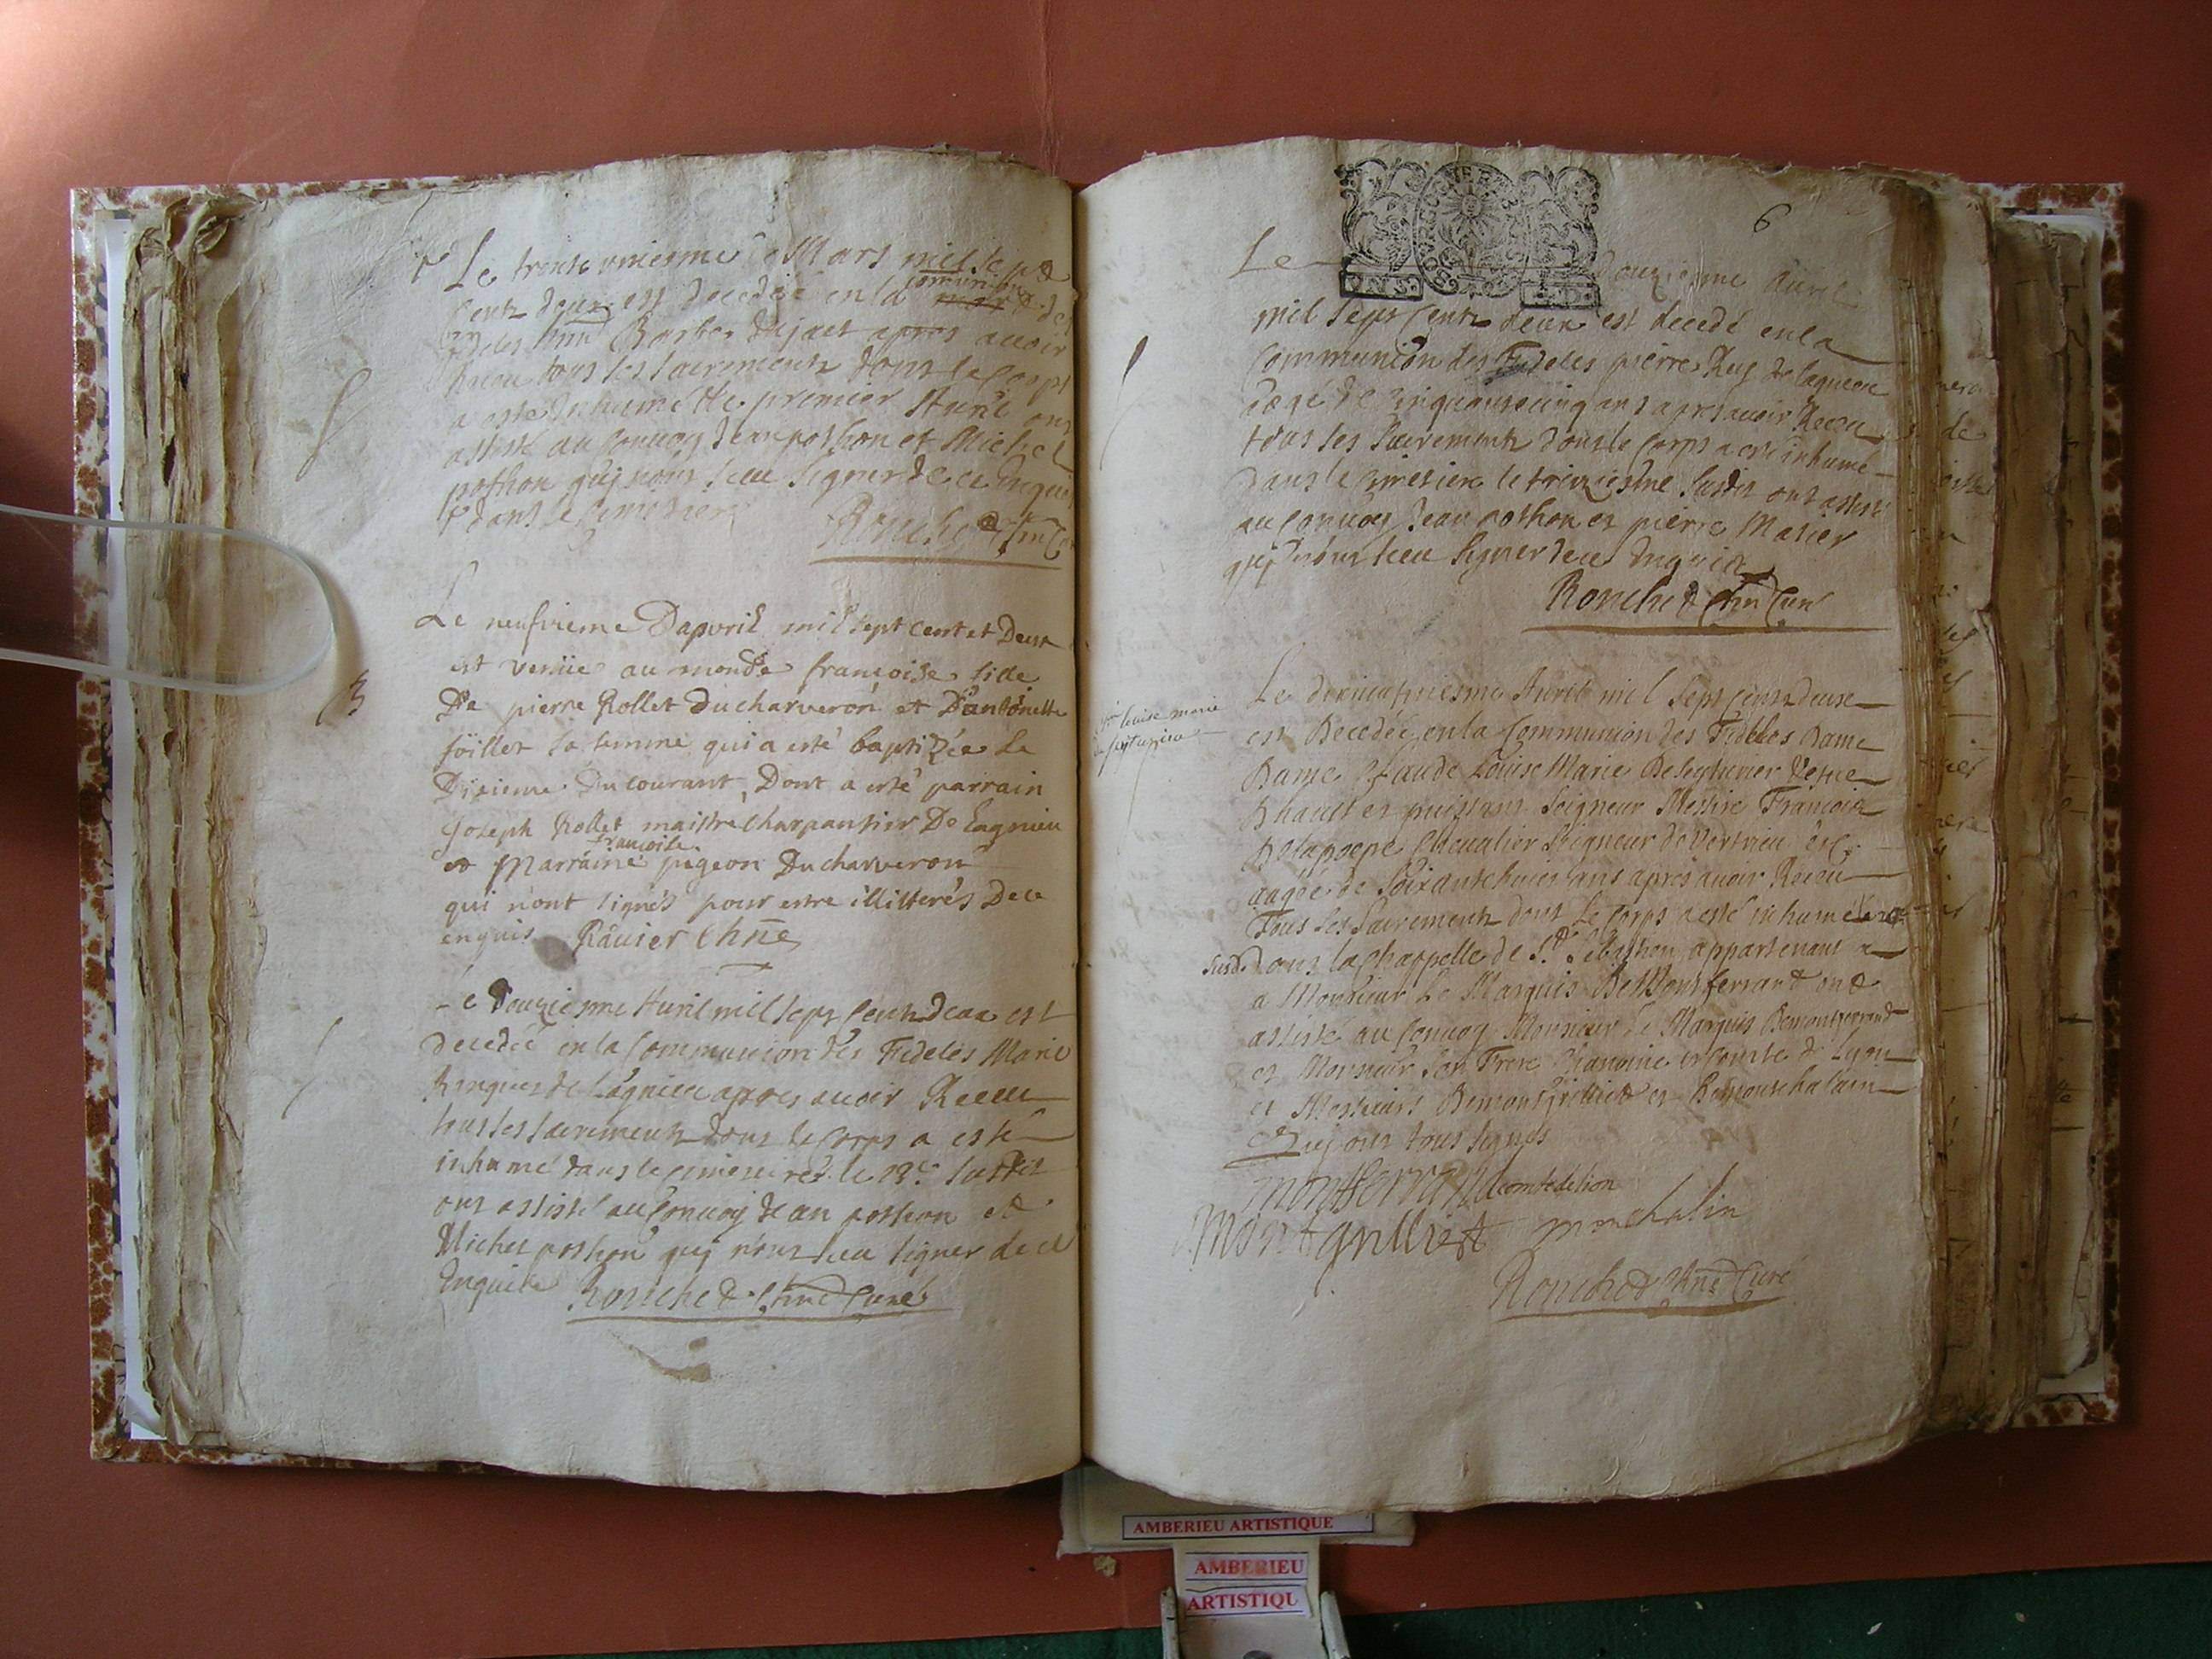 Le trente uniesme de Mars mil sept
cents deux est decedée en la communion des
fideles Barbe Dujact apres auoir
Receu tous les sacrements dont le corps
a esté Inhumé le premier Auril ont
assisté au conuoy Jean pothon et Michel
pothon quj n'ont sceu signer de ce Enquis
dans le Cimetiere
Ronchet Chne Curé
Le neufvieme Dapvril mil sept cent et Deux
est venüe au monde francoise fille
De pierre Rollet Du charveron et D'antoinette
sa femme qui a esté baptizée Le
Dixieme Du courant, Dont a esté parrain
Joseph Rollet maistre charpantier De Lagnieu
francoise
et Marraine pigeon Du charveron
qui n'ont signés pour estre illitterés De ce
enquis Rauier Chne
Le Douziesme Auril mil sept cents deux est
decedée en la Communion des Fideles Marie
de Lagnieu apres auoir Receu
tous les sacrements dont le corps a esté
inhumé dans le cimetiere le 13e susdit
ont assisté au Conuoy Jean pothon et
Michel pothon quj n'ont sceu signer de ce
Enquis Ronchet Chne Curé
6
Le Douziesme Auril
mil sept cents deux est decedé en la
Communion des Fideles pierre Rey de Lagnieu
aagé de cinquante cinq ans apres auoir Receu
tous les sacrements dont le corps a esté inhumé
dans le Cimetiere le treiziesme susdit ont assisté
au Conuoy Jean pothon et pierre Matier
quj n'ont sceu signer de ce Enquis
Ronchet Chne Curé
louise marie
de seyturier
Le Auril mil sept cents deux
est Decedée en la Communion des Fideles Dame
Dame Claude Louise Marie De Seyturier Vefue
D hault et puissant Seigneur Messire Francois
De la poepe Cheualier Seigneur de Vertrieu etc.
aagée de soixante huict ans apres auoir Receu
Tous les Sacrements dont Le Corps a esté inhumé
susd. dans la Chappelle de St. Sebastien appartenant a
a Monsieur Le Marquis De Montferrand ont
assisté au Conuoy Monsieur Le Marquis De montferrand
et Monsieur Son Frere Chanoine et Comte de Lyon
et Messieurs De montgrilliet et De montchalain
Quj ont tous signés
montferrand comte de lion
Montgrilliet monchalin
Ronchet Chne Curé
AMBERIEU ARTISTIQUE
AMBERIEU
ARTISTIQU